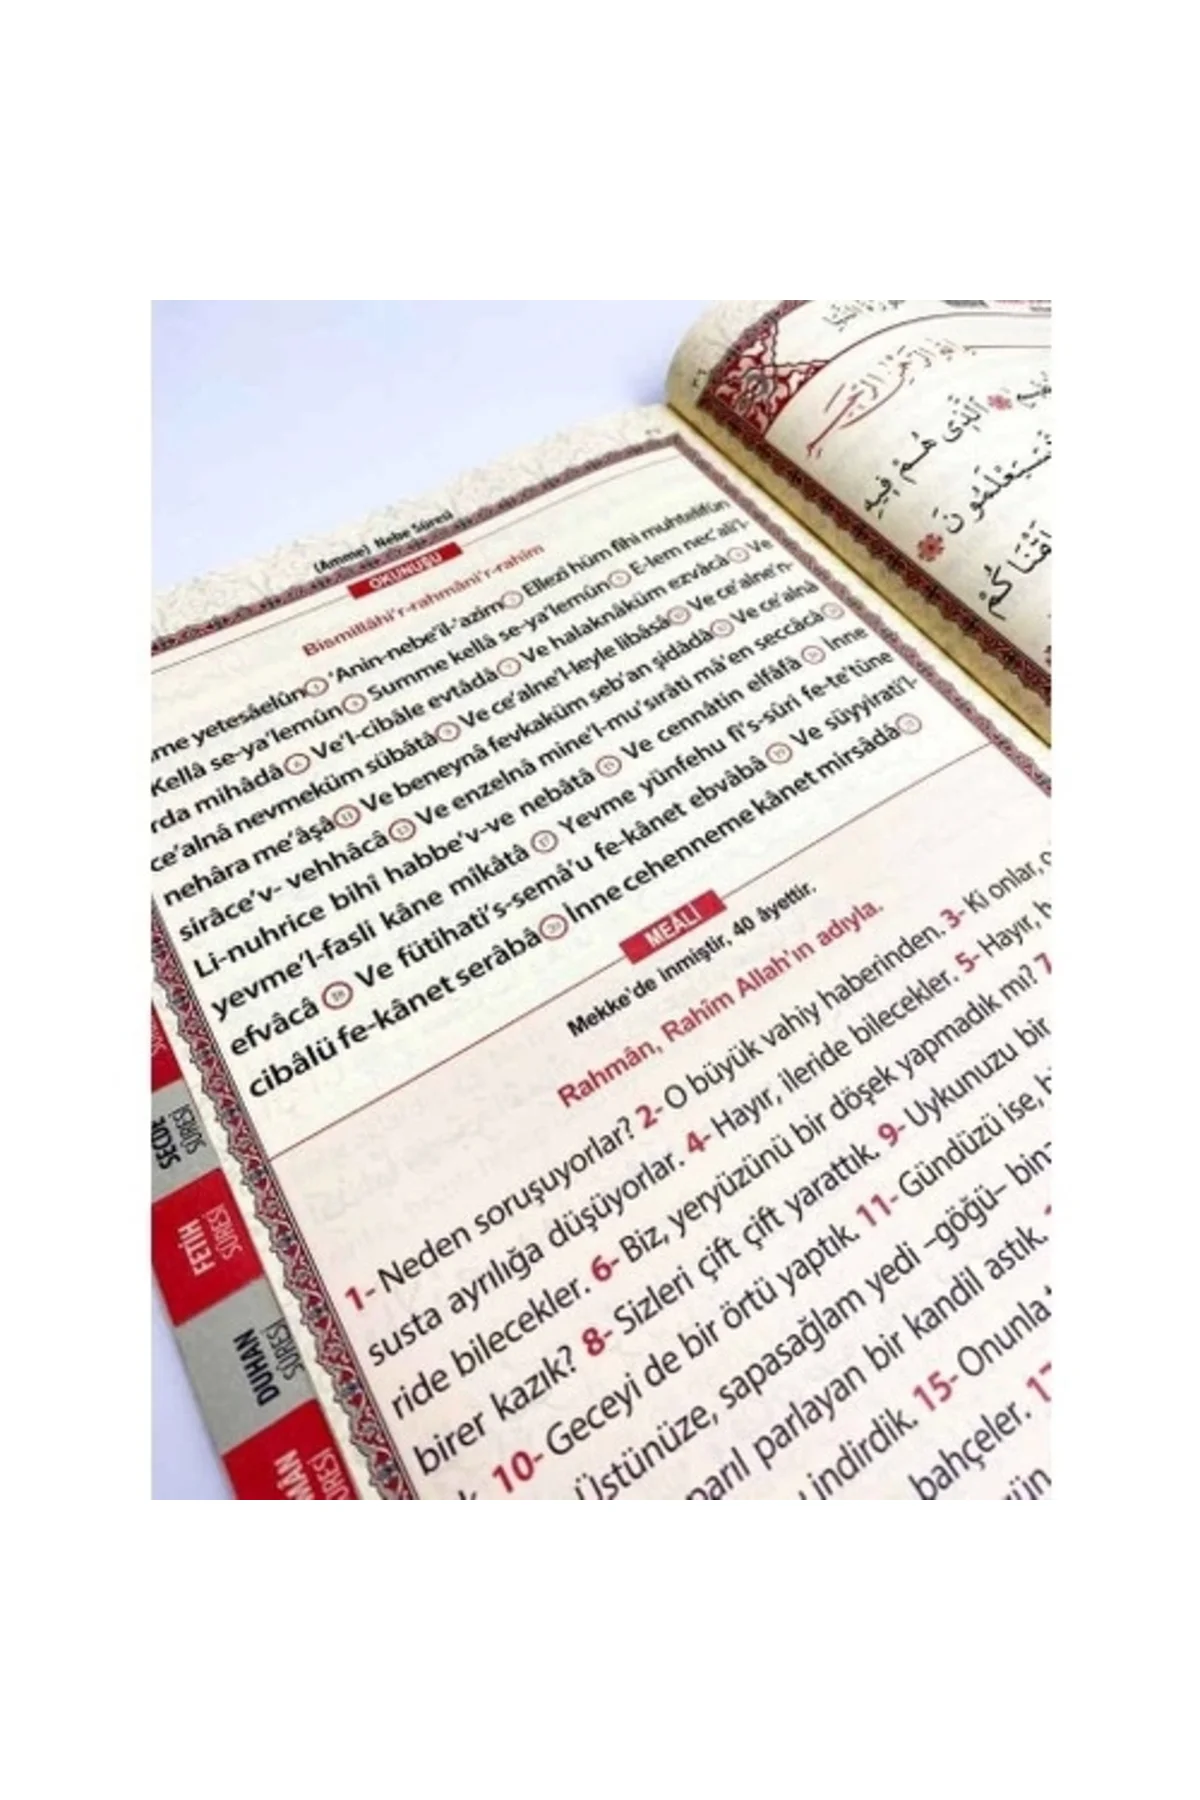 (Amme) Nebe Sûresi
OKUNUŞU
Bismillâhi'r-rahmâni'r-rahîm
me yetesâelûn 1 'Anin-nebe'il-'azîm 2 Ellezî hüm fîhi muhtelifûn
Kellâ se-ya'lemûn 4 Summe kellâ se-ya'lemûn 5 E-lem nec'ali'l-
rda mihâdâ 6 Ve'l-cibâle evtâdâ 7 Ve halaknâküm ezvâcâ 8 Ve
ce'alnâ nevmeküm sübâtâ 9 Ve ce'alne'l-leyle libâsâ 10 Ve ce'alne'n-
nehâra me'âşâ 11 Ve beneynâ fevkaküm seb'an şidâdâ 12 Ve ce'alnâ
sirâce'v- vehhâcâ 13 Ve enzelnâ mine'l-mu'sırâti mâ'en seccâcâ 14
Li-nuhrice bihî habbe'v-ve nebâtâ 15 Ve cennâtin elfâfâ 16 İnne
yevme'l-fasli kâne mîkâtâ 17 Yevme yünfehu fi's-sûri fe-te'tûne
efvâcâ 18 Ve fütihati's-semâ'u fe-kânet ebvâbâ 19 Ve süyyirati'l-
cibâlü fe-kânet serâbâ 20 İnne cehenneme kânet mirsâdâ 21
MEALİ
Mekke'de inmiştir, 40 âyettir.
Rahmân, Rahîm Allah'ın adıyla.
1- Neden soruşuyorlar? 2- O büyük vahiy haberinden. 3- Ki onlar,
susta ayrılığa düşüyorlar. 4- Hayır, ileride bilecekler. 5- Hayır,
ride bilecekler. 6- Biz, yeryüzünü bir döşek yapmadık mı? 7
birer kazık? 8- Sizleri çift çift yarattık. 9- Uykunuzu bir
10- Geceyi de bir örtü yaptık. 11- Gündüzü ise,
Üstünüze, sapasağlam yedi –göğü– bin
parıl parlayan bir kandil astık.
indirdik. 15- Onunla
bahçeler. 17
SECDE
SÛRESİ
FETİH
SÛRESİ
DUHAN
SÛRESİ
MÂN
ÛRESİ
سورة النبإ
الَّذِي هُمْ فِيهِ
سَيَعْلَمُونَ